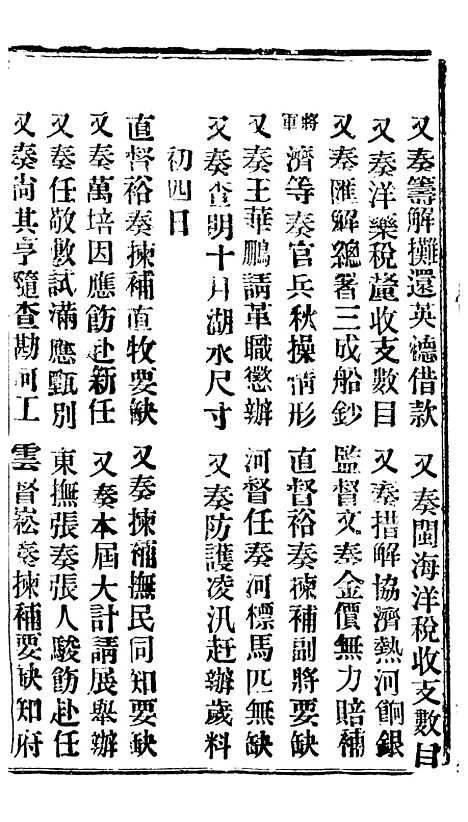 又奏籌解攤還英德借款　又奏閩海洋稅收支數目
又奏洋藥稅釐收支數目　又奏措解協濟熱河餉銀
又奏匯解總署三成船鈔　監督文奏金價無力賠補
將軍濟等奏官兵秋操情形　直督裕奏揀補副將要缺
又奏王華鵬請革職懲辦　河督任奏河標馬匹無缺
又奏查明十月湖水尺寸　又奏防護凌汛赶辦歲料
初四日
直督裕奏揀補直牧要缺　又奏揀補撫民同知要缺
又奏萬培因應飭赴新任　又奏本屆大計請展舉辦
又奏任敬敷試滿應甄別　東撫張奏張人駿飭赴任
又奏尚其亨隨查勘河工　雲督崧奏揀補要缺知府